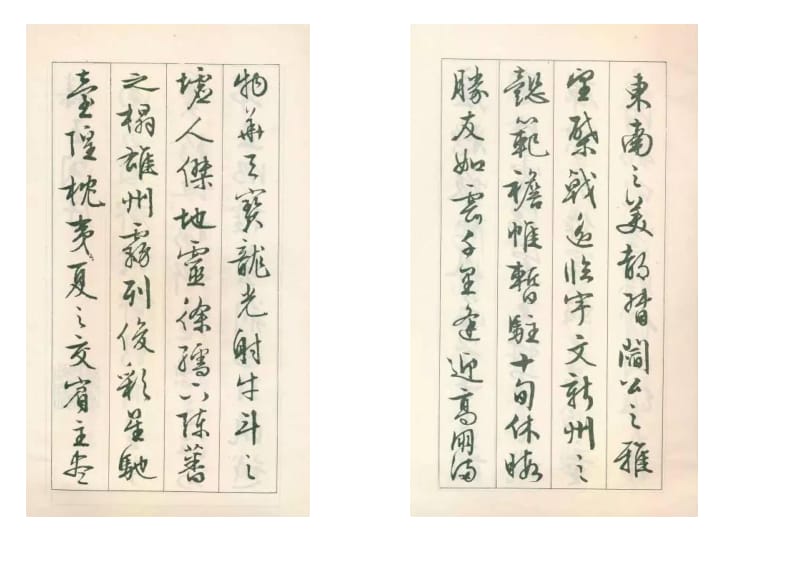 物華天寶龍光射牛斗之
墟人傑地靈徐孺下陳蕃
之榻雄州霧列俊彩星馳
臺隍枕夷夏之交賓主盡
東南之美都督閻公之雅
望棨戟遙臨宇文新州之
懿範襜帷暫駐十旬休暇
勝友如雲千里逢迎高朋滿